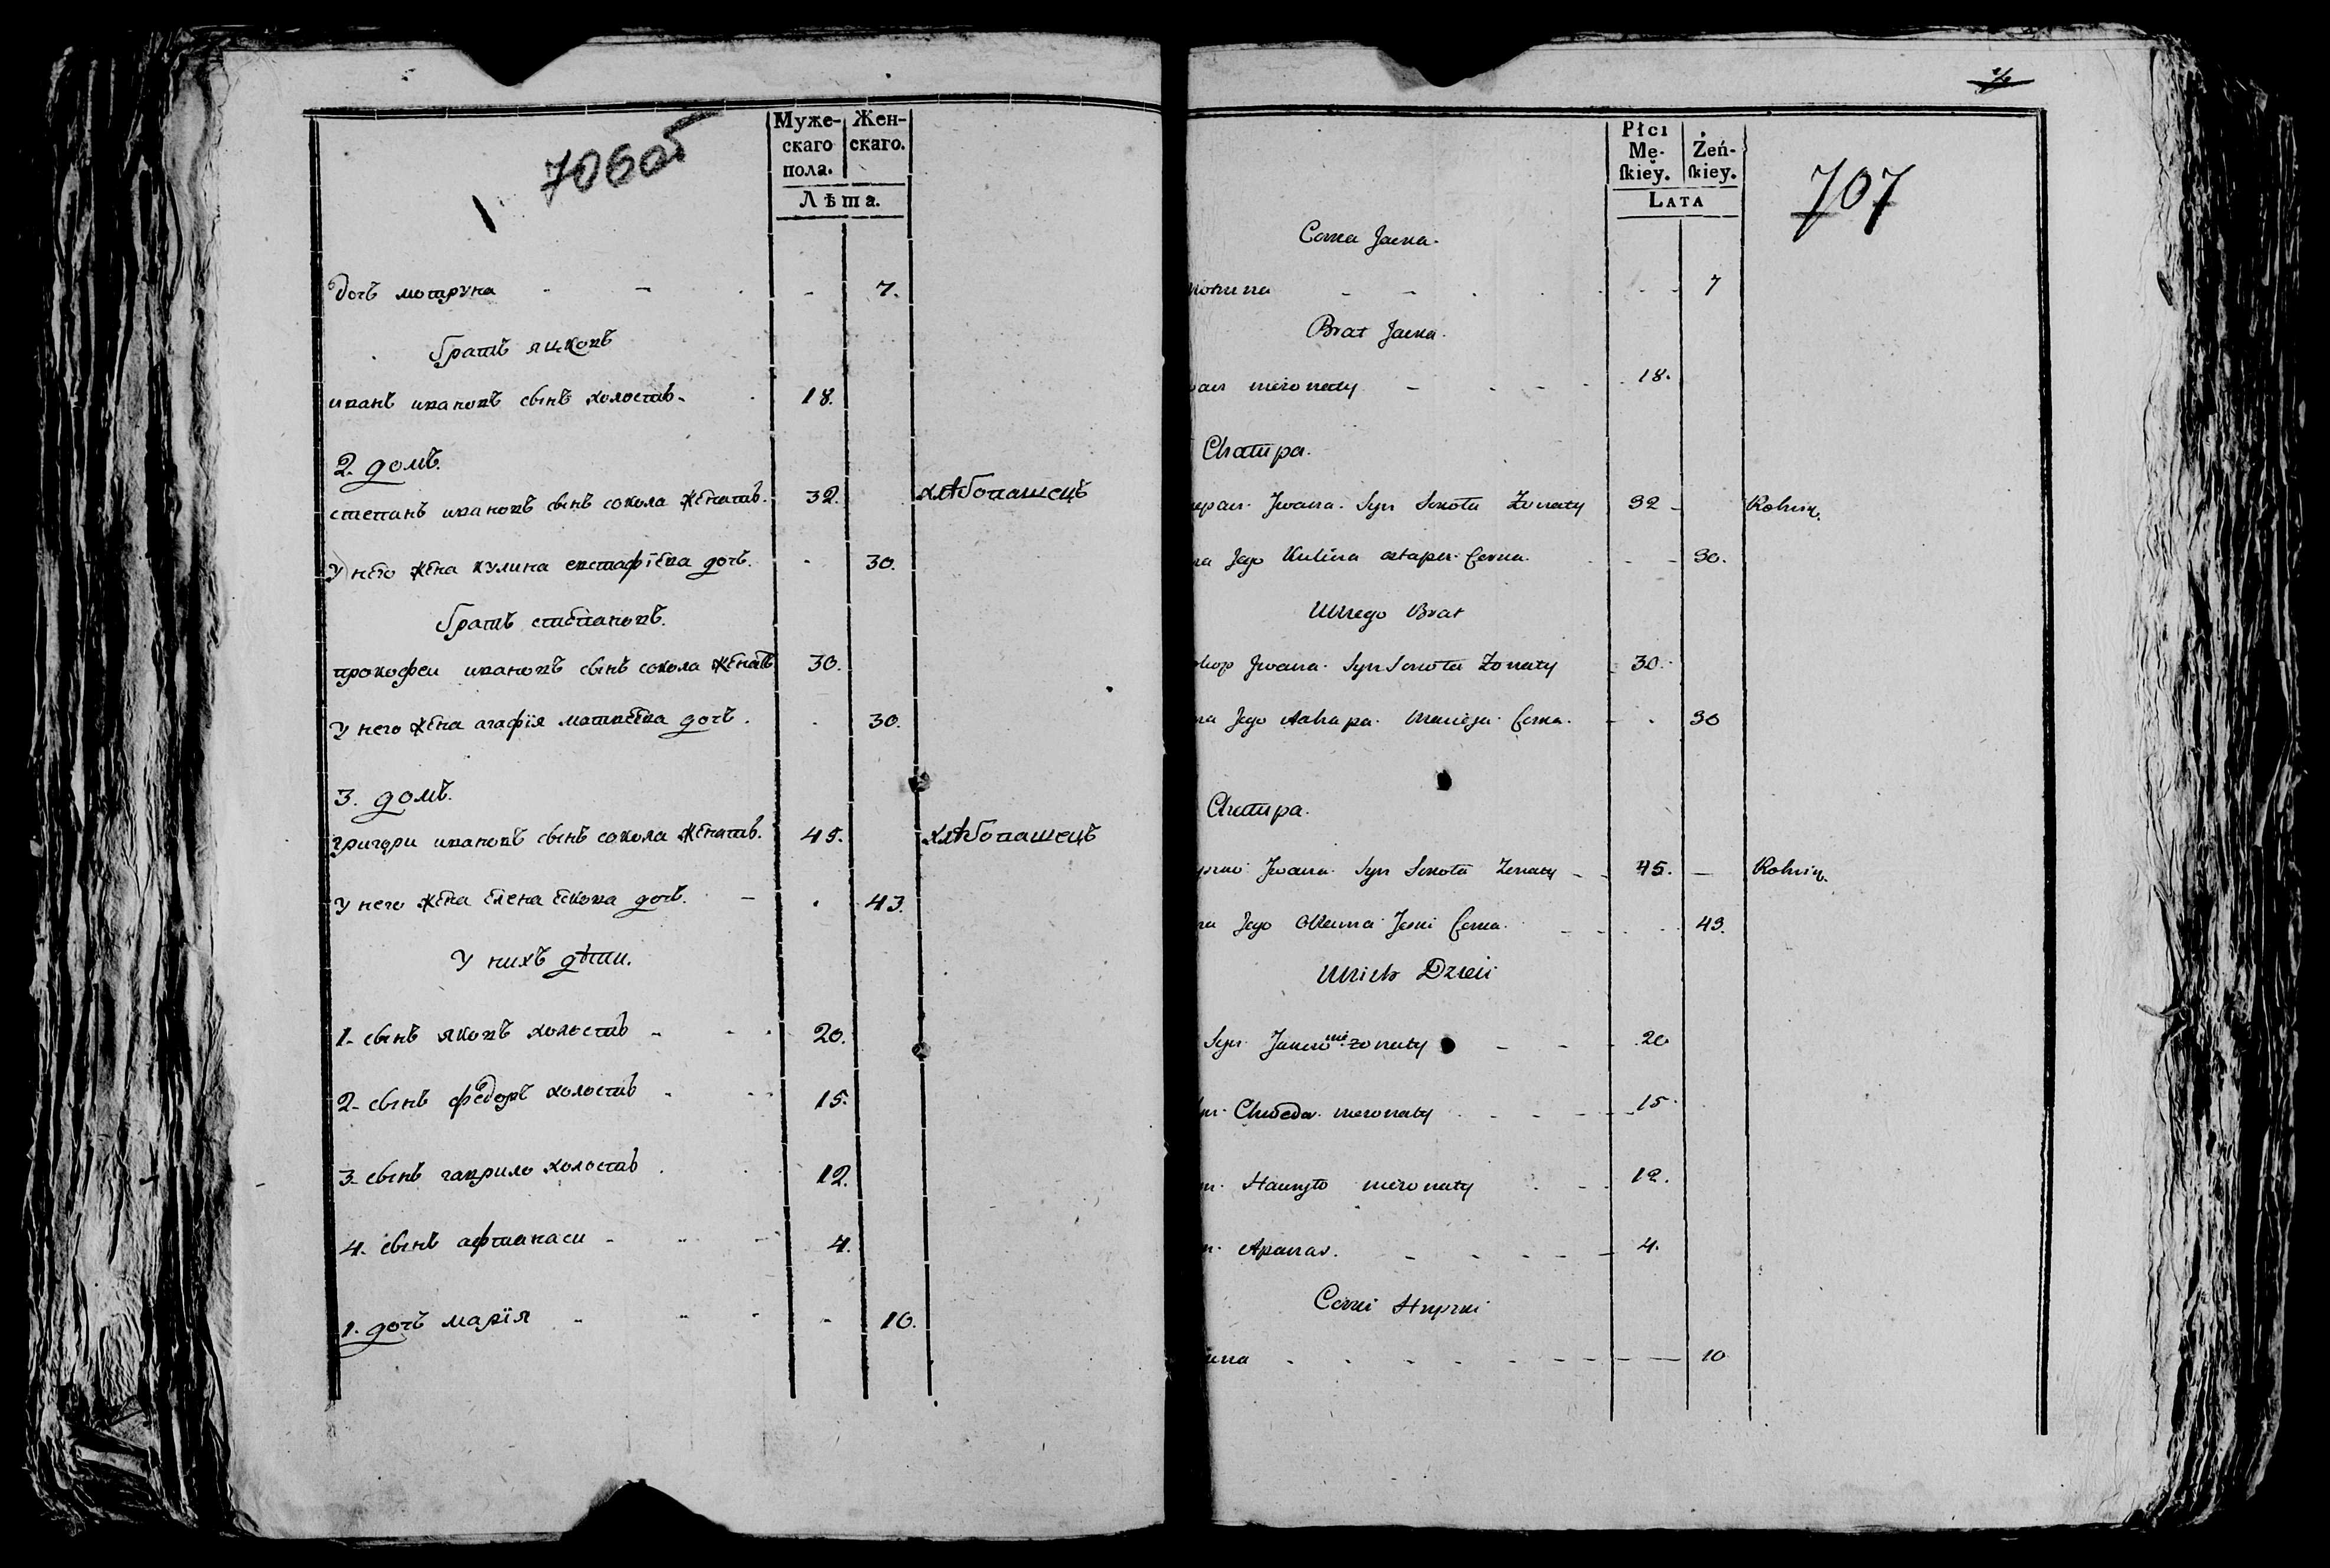 706об
Муже-
скаго
пола.
Жен-
скаго.
Лѣта.
дочь мотруна - - - 7.
братъ яцковъ
иванъ ивановъ сынъ холостъ - 18.
2. домъ.
степанъ ивановъ сынъ сокола женатъ. 32. хлѣбопашецъ
У него жена кулина евстафіева дочь. - 30.
братъ степановъ.
прокофеи ивановъ сынъ сокола женатъ 30.
У него жена агафія матвеева дочь. - 30.
3. домъ.
григори ивановъ сынъ сокола женатъ. 45. хлѣбопашецъ
У него жена елена ескова дочь. - 43.
У нихъ дѣти.
1. сынъ яковъ холостъ - - 20.
2. сынъ федоръ холостъ - - 15.
3. сынъ гаврило холостъ - 12.
4. сынъ афтанаси - - - 4.
1. дочь марія - - - - 10.
707
Płci
Mę-
skiey.
Żeń-
skiey.
LATA
Corka Jacka.
7
Brat Jacka.
niezonaty - - - 18.
Chałupa.
Jwana. Syn Sokoła Zonaty 32 - Rolnik.
Jego Kulina ostapa. Corka. - - - 30.
U Niego Brat
Jwana. Syn Sokoła Zonaty 30.
Jego Aahapa. Corka. - - 30
Chałupa.
Jwana. Syn Sokoła Zonaty - - 45. - Rolnik.
Jego Ollanna Corka. - - - 43.
U Nich Dzieci
Syn. niezonaty - - - 20
Chwedor. niezonaty - - - 15
Hawryło niezonaty - - 12.
Apanas. - - - - - 4.
Corki Hryĉki
10